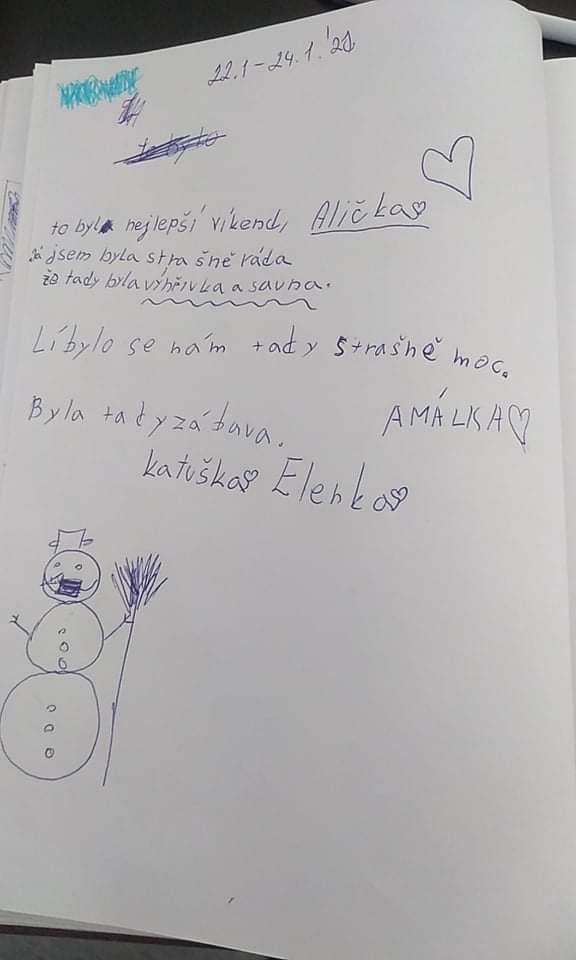 22.1 - 24.1.'21
to byl nejlepší víkend, Alička
Já jsem byla stra šně ráda
že tady byla výhřivka a sauna.
Líbylo se nám tady strašně moc.
Byla tady zábava. AMÁLKA
katuška Elenka